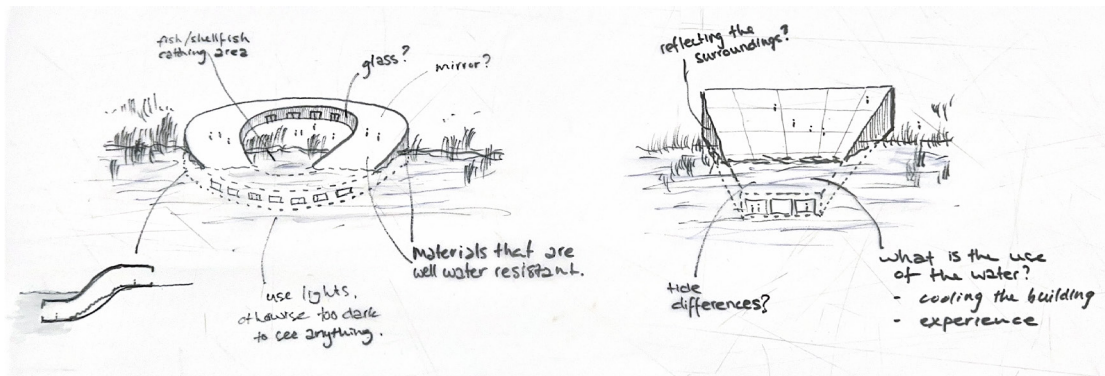 fish/shellfish
cathing area
glass?
mirror?
materials that are
well water resistant.
use lights,
otherwise too dark
to see anything.
reflecting the
surroundings?
tide
differences?
what is the use
of the water?
- cooling the building
- experience